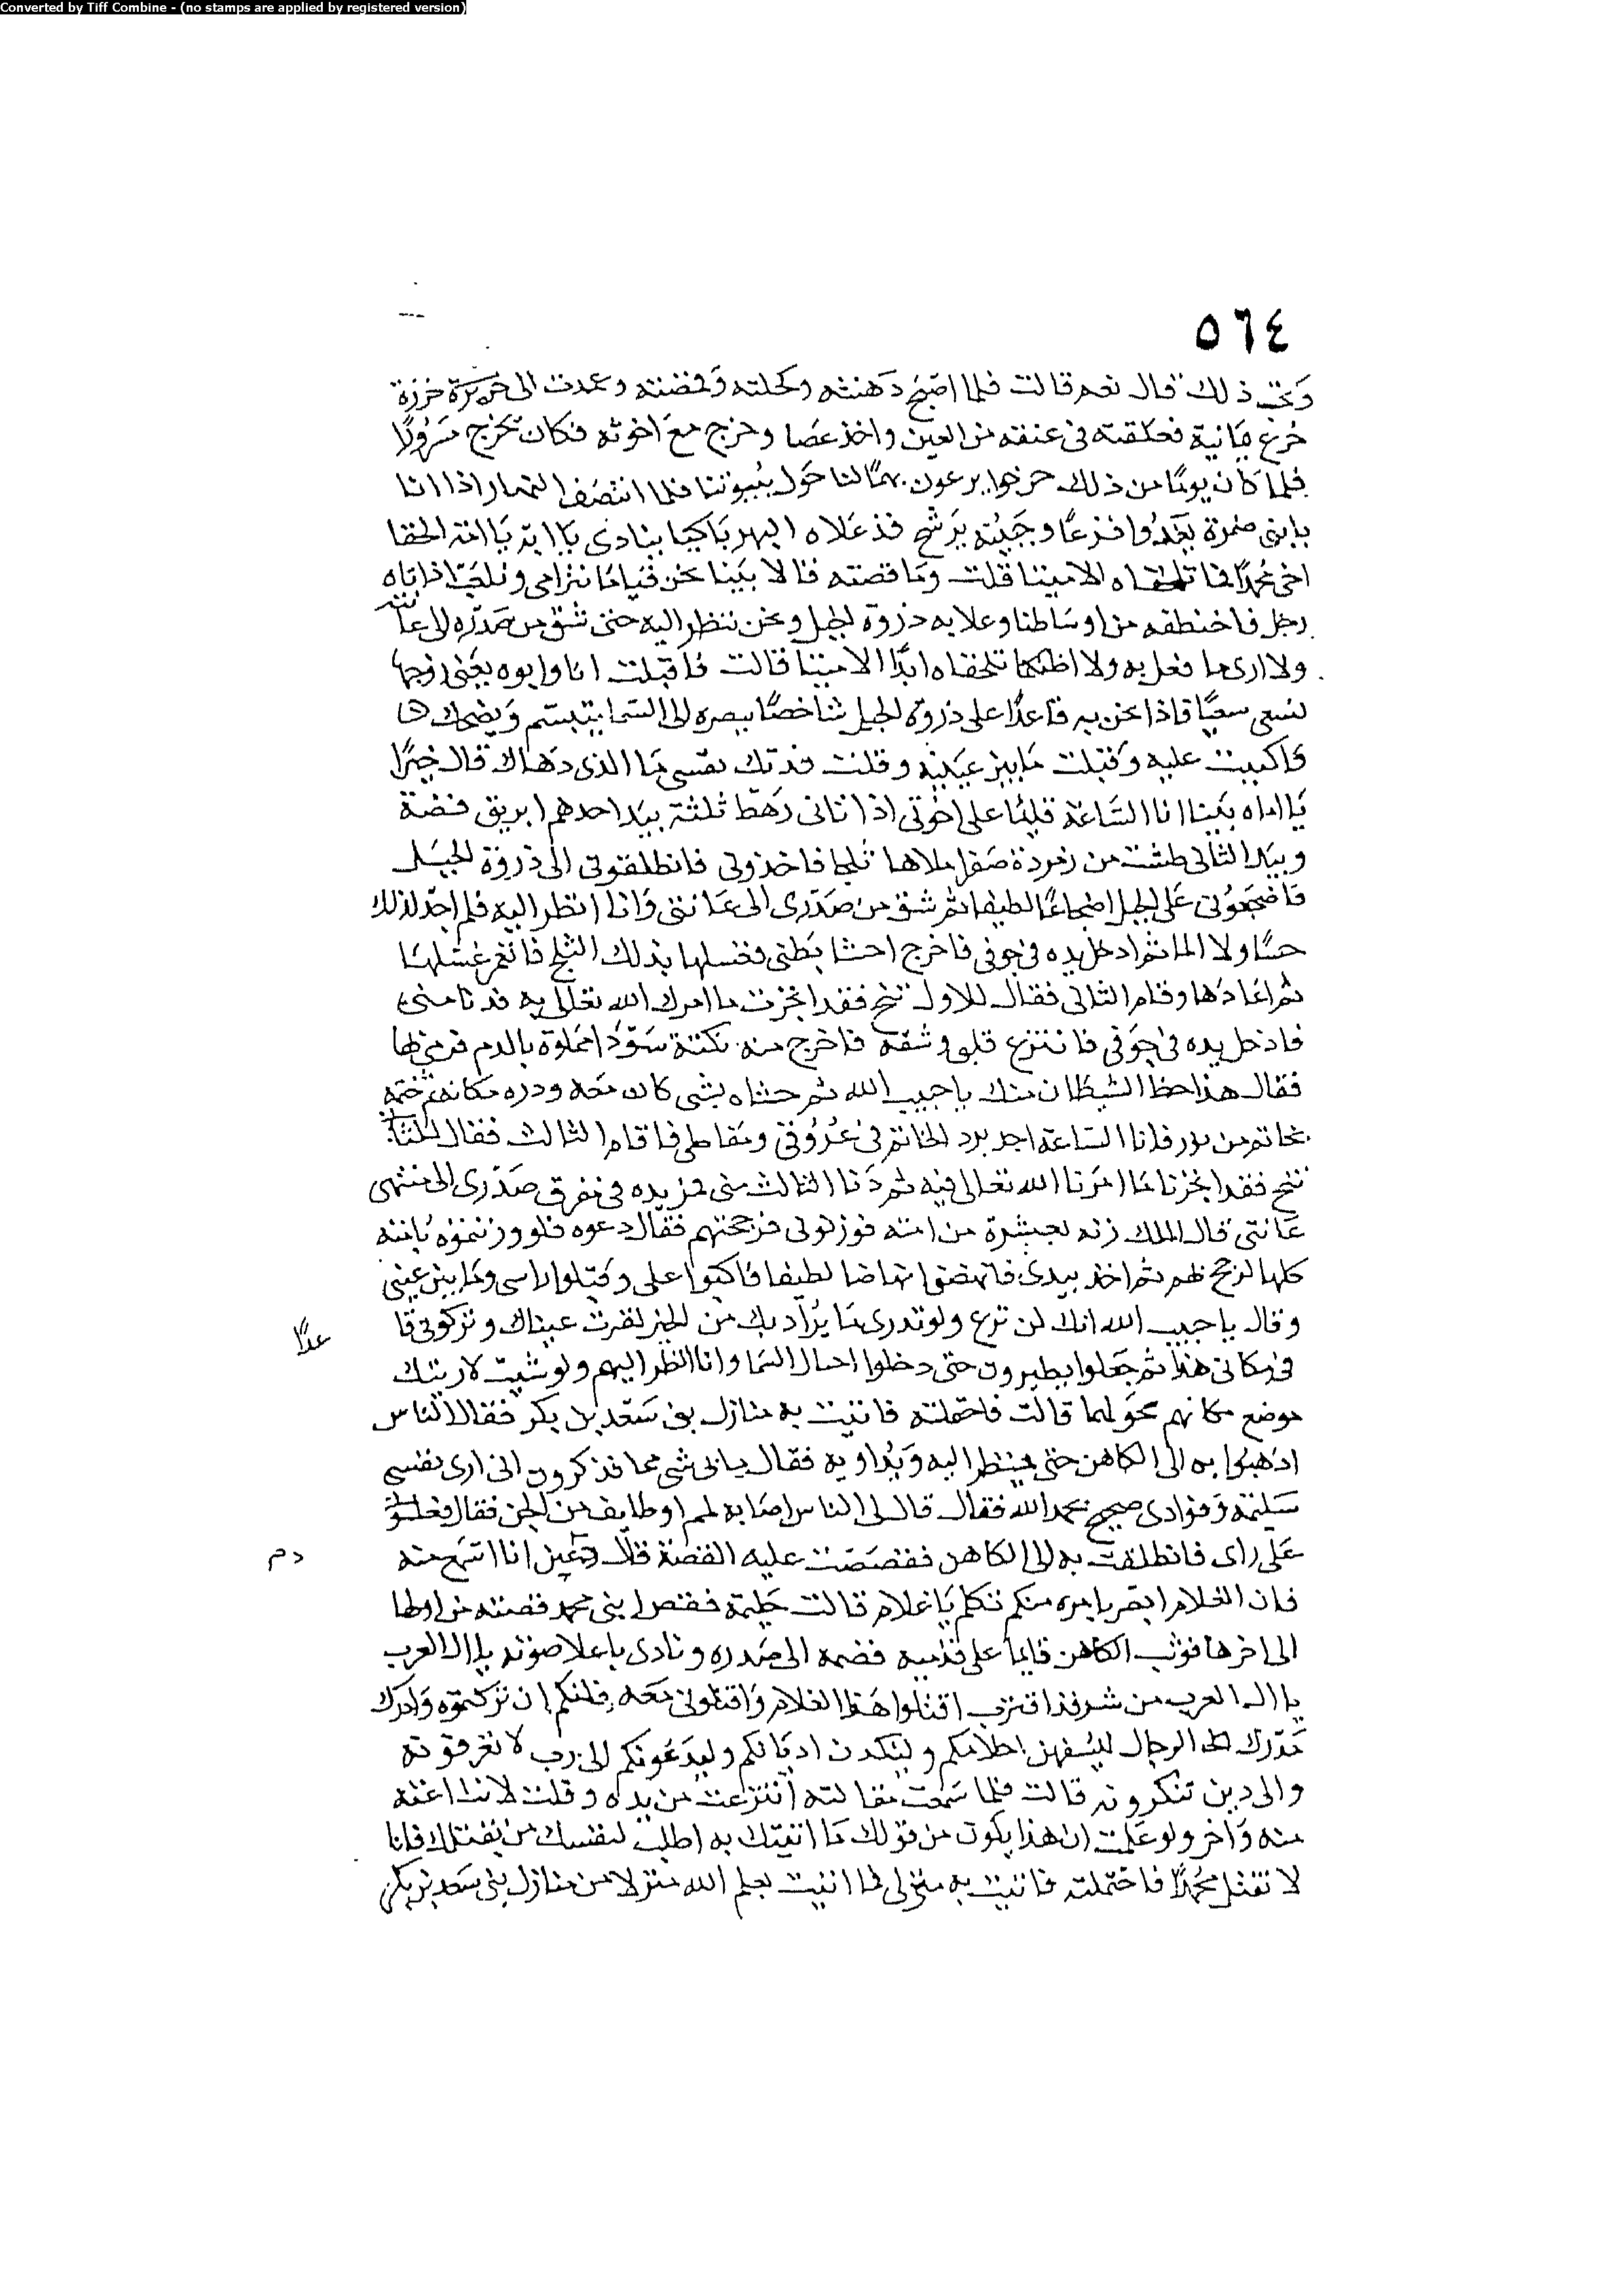 Converted by Tiff Combine - (no stamps are applied by registered version)
٥٦٤
وتحب ذلك قال نعم قالت فلما اصبح دهنته وكحلته وقمصته وعمدت الى خرزة
جزع يمانية فعلقته فى عنقه من العين واخذ عصا وخرج مع اخوته فكان يخرج مسرورًا
فلما كان يومًا من ذلك خرجوا يرعون بهمًا لنا حول بيوتنا فلما انتصف النهار اذا انا
بابنى ضمرة يعدوا فزعًا وجبينه يرشح قد علاه البهر باكيا ينادى يا ابه يا امه الحقا
اخى محمدًا فما تلحقاه الا ميتا قلت وما قصته قالا بينا نحن قيامًا نترامى ونلعب اذ اتاه
رجل فاختطفه من اوساطنا وعلا به ذروة الجبل ونحن ننظر اليه حتى شق من صدره الى عانته
ولا ارى ما فعل به ولا اظنكما تلحقاه ابدًا الا ميتا قالت فاقبلت انا وابوه يعنى زوجها
نسعى سعيًا فاذا نحن به قاعدًا على ذروة الجبل شاخصًا ببصره الى السما يتبسم ويضحك
فاكببت عليه وقبلت ما بين عينيه وقلت فدتك نفسى ما الذى دهاك قال خيرًا
يا اماه بينا انا الساعة قايمًا على اخوتى اذ اتانى رهط ثلثة بيد احدهم ابريق فضة
وبيد الثانى طشت من زمردة خضرا ملاها ثلجا فاخذونى فانطلقوا بى الى ذروة الجبل
فاضجعونى على الجبل اضجاعًا لطيفا ثم شق من صدرى الى عانتى وانا انظر اليه فلم اجد لذلك
حسًا ولا الما ثم ادخل يده فى جوفى فاخرج احشا بطنى فغسلها بذلك الثلج فانعم غسلها
ثم اعادها وقام الثانى فقال للاول تنح فقد انجزت ما امرك الله تعالى به فدنا منى
فادخل يده فى جوفى فانتزع قلبى وشقه فاخرج منه نكتة سودا مملوة بالدم فرمى بها
فقال هذا حظ الشيطان منك يا حبيب الله ثم حشاه بشى كان معه ورده مكانه ثم ختمه
بخاتم من نور فانا الساعة اجد برد الخاتم فى عروقى ومفاصلى فا قام الثالث فقال
تنح فقد انجزتما ما امرنا الله تعالى فيه ثم دنا الثالث منى فمر يده فى مفرق صدرى الى منتهى
عانتى قال الملك زنه بعشرة من امته فوزنونى فرجحتهم فقال دعوه فلو وزنتموه بامته
كلها لرجح بهم ثم اخذ بيدى فانهضنى انهاضا لطيفا فاكبوا على وقبلوا راسى وما بين عينى
وقال يا حبيب الله انك لن ترع ولو تدرى ما يراد بك من الخير لقرت عيناك وتركونى قا
عدًا
فى مكانى هذا ثم جعلوا يطيرون حتى دخلوا السما وانا انظر اليهم ولو شيت لاريتك
موضع مكانهم قالت فاحتملته فاتيت به منازل بنى سعد بن بكر فقال الناس
اذهبوا به الى الكاهن حتى ينظر اليه ويداويه فقال ما بى شى مما تذكرون انى ارى نفسى
سليمة وفوادى صحيح بحمد الله فقال قال لى الناس اصابه لمم او طايف من الجن
على راى فانطلقت به الى الكاهن فقصصت عليه القصة قال انا اسمع منه
دم
فان الغلام ابصر بامره منكم تكلم يا غلام قالت حليمة فقص ابنى محمد قصته من اولها
الى اخرها فوثب الكاهن قايمًا على قدميه فضمه الى صدره ونادى باعلا صوته يا ال العرب
يا ال العرب من شر قد اقترب اقتلوا هذا الغلام واقتلونى معه فانكم ان تركتموه وادرك
مدرك الرجال ليسفهن احلامكم وليكذبن اديانكم وليدعونكم الى رب لا تعرفونه
والى دين تنكرونه قالت فلما سمعت مقالته انتزعته من يده وقلت لانت اعته
منه ولو علمت ان هذا يكون من قولك ما اتيتك به اطلب لنفسك من يقتلك فانا
لا نقتل محمدًا فاحتملته فاتيت به منزلى فما اتيت يعلم الله منزلا من منازل بنى سعد بن بكر